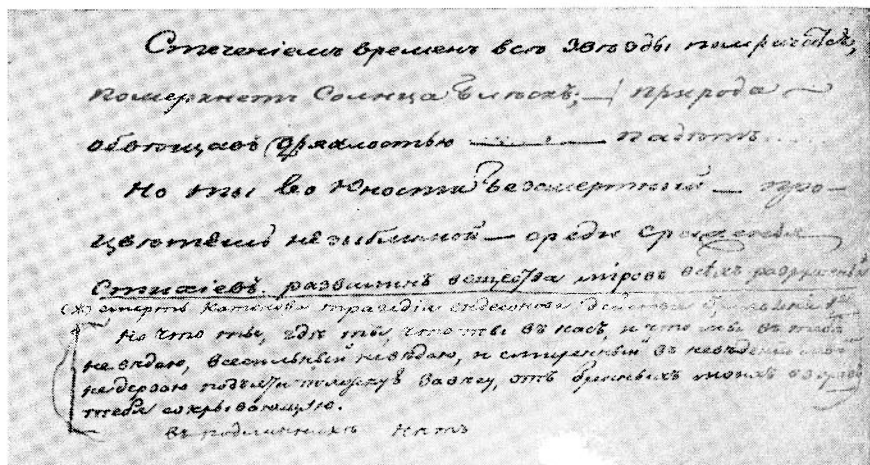 Стеченіемъ временъ всѣ звѣзды помрачатся,
померкнетъ Солнца блескъ; — природа —
обветшавъ дряхлостью — падетъ
Но ты во юности безсмертный — про-
цвѣтешь незыблимой — среди сраженія
Стихіевъ, развалинъ вещества міровъ всѣхъ разрушенія
(ж) смерть Катонова трагедія Еддесонова Дѣйствіе
Но что ты, гдѣ ты, что ты въ насъ, и что мы въ тебѣ
невѣдаю, всесильный невѣдаю, и смиренный въ невѣденіи моемъ
недерзаю подъяти томную завѣсу, отъ бренныхъ моихъ взоровъ
тебя сокрывающую.
въ подлинникѣ нѣтъ